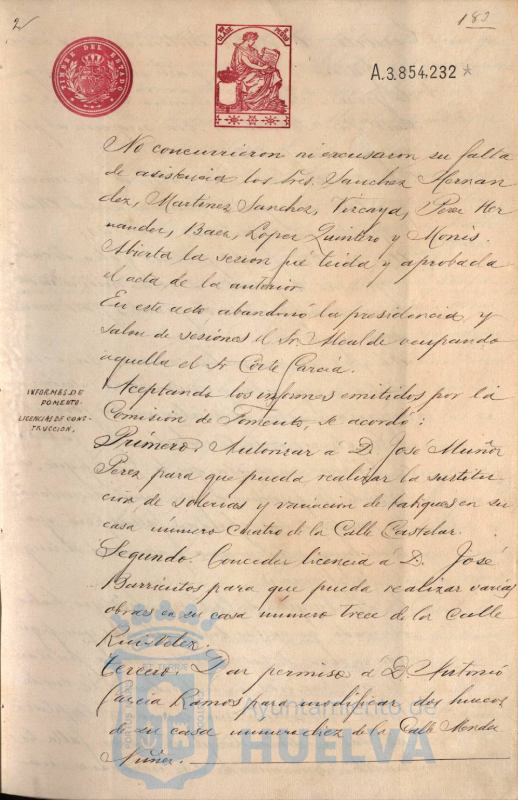 2
183
TIMBRE DEL ESTADO
A.3.854.232 *
No concurrieron ni excusaron su falta
de asistencia los Sres. Sanchez Hernan
dez, Martinez Sanchez, Vizcaya, Perez Her
nandez, Baez, Lopez Quintero y Monis.
Abierta la sesion fué leida y aprobada
el acta de la anterior.
En este acto abandonó la presidencia y
salon de sesiones el Sr. Alcalde ocupando
aquella el Sr Corte Garcia.
INFORMES DE
FOMENTO.
LICENCIAS DE CONS-
TRUCCION.
Aceptando los informes emitidos por la
Comisión de Fomento, se acordó:
Primero. Autorizar á D. José Muñoz
Perez para que pueda realizar la sustitu
ción de solerias y variacion de tabiques en su
casa número cuatro de la Calle Castelar.
Segundo. Conceder licencia á D. José
Barrientos para que pueda realizar varias
obras en su casa numero trece de la Calle
Ruiz Velez.
Tercero. Dar permiso á D. Antonio
Garcia Ramos para modificar dos huecos
de su casa numero diez de la Calle Mendez
Nuñez.
Ayuntamiento de
HUELVA